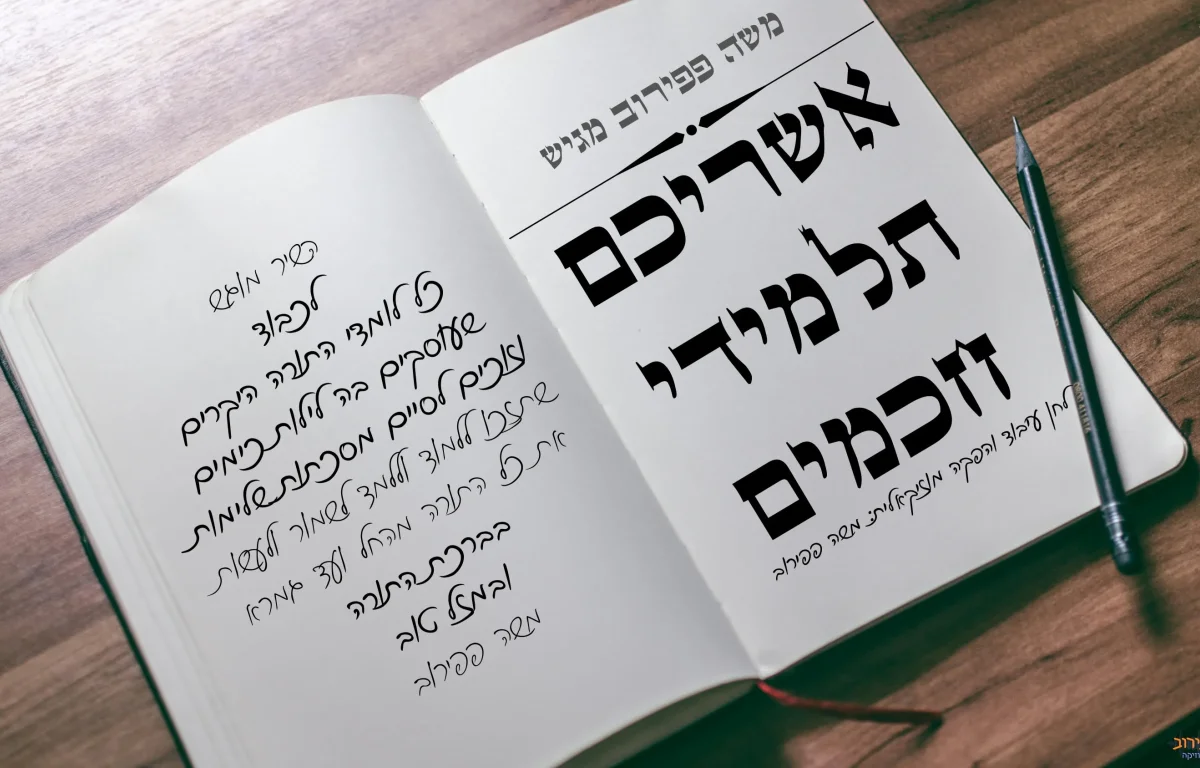 משה פפירוב מגיש
אשריכם
תלמידי
חכמים
לחן עיבוד והפקה מוזיקאלית: משה פפירוב
השיר מוגש
לכבוד
כל לומדי התורה היקרים
שעוסקים בה לילות כימים
וזוכים לסיים מסכתות שלימות
שתזכו ללמוד וללמד לשמור ולעשות
את כל התורה מהחל ועד גמרא
בברכת התורה
ובמזל טוב
משה פפירוב